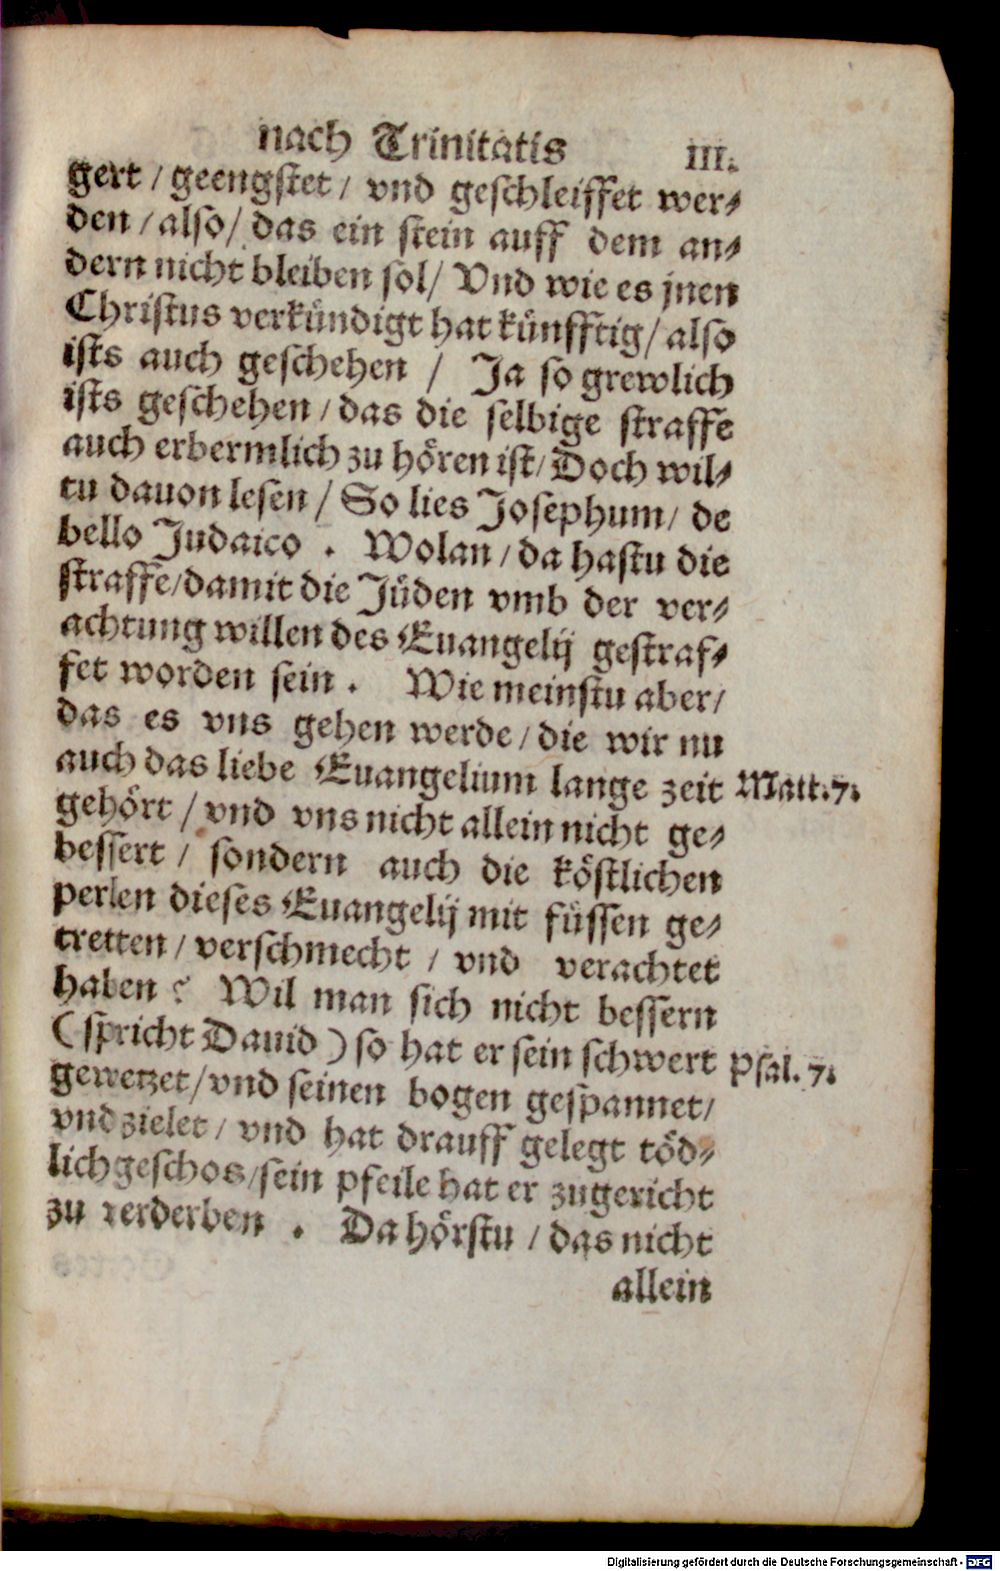 nach Trinitatis III.
gert / geengstet / vnd geschleiffet wer⸗
den / also / das ein stein auff dem an⸗
dern nicht bleiben sol / Vnd wie es jnen
Christus verkündigt hat künfftig / also
ists auch geschehen / Ja so grewlich
ists geschehen / das die selbige straffe
auch erbermlich zu hören ist / Doch wil⸗
tu dauon lesen / So lies Josephum / de
bello Judaico . Wolan / da hastu die
straffe / damit die Jüden vmb der ver⸗
achtung willen des Euangelij gestraf⸗
fet worden sein . Wie meinstu aber /
das es vns gehen werde / die wir nu
auch das liebe Euangelium lange zeit Matt. 7.
gehört / vnd vns nicht allein nicht ge⸗
bessert / sondern auch die köstlichen
perlen dieses Euangelij mit füssen ge⸗
tretten / verschmecht / vnd verachtet
haben ? Wil man sich nicht bessern
( spricht Dauid ) so hat er sein schwert Psal. 7.
gewetzet / vnd seinen bogen gespannet /
vnd zielet / vnd hat drauff gelegt töd⸗
lich geschos / sein pfeile hat er zugericht
zu verderben . Da hörstu / das nicht
allein
Digitalisierung gefördert durch die Deutsche Forschungsgemeinschaft - DFG